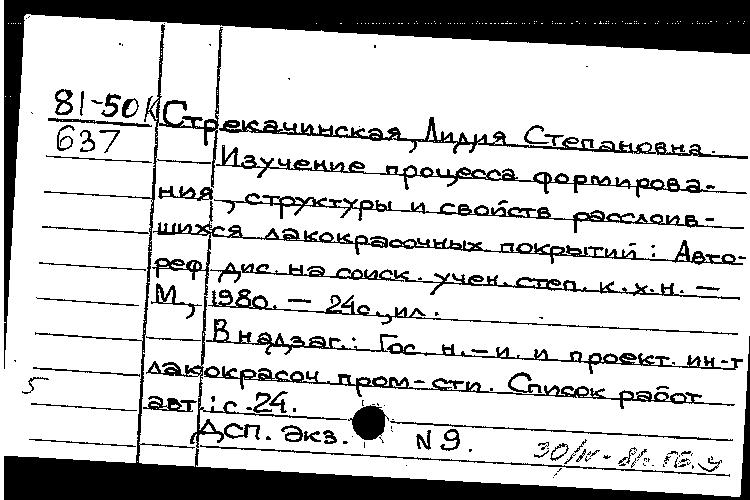 81-50К Стрекачинская, Лидия Степановна.
637
Изучение процесса формирова-
ния, структуры и свойств расслоив-
шихся лакокрасочных покрытий : Авто-
реф. дис. на соиск. учен. степ. к.х.н. —
М., 1980. — 24с., ил.
В надзаг.: Гос. н.-и. и проект. ин-т
лакокрасоч. пром-сти. Список работ
5
авт.: с. 24.
ДСП. Экз. N 9.
30/IV - 81г.